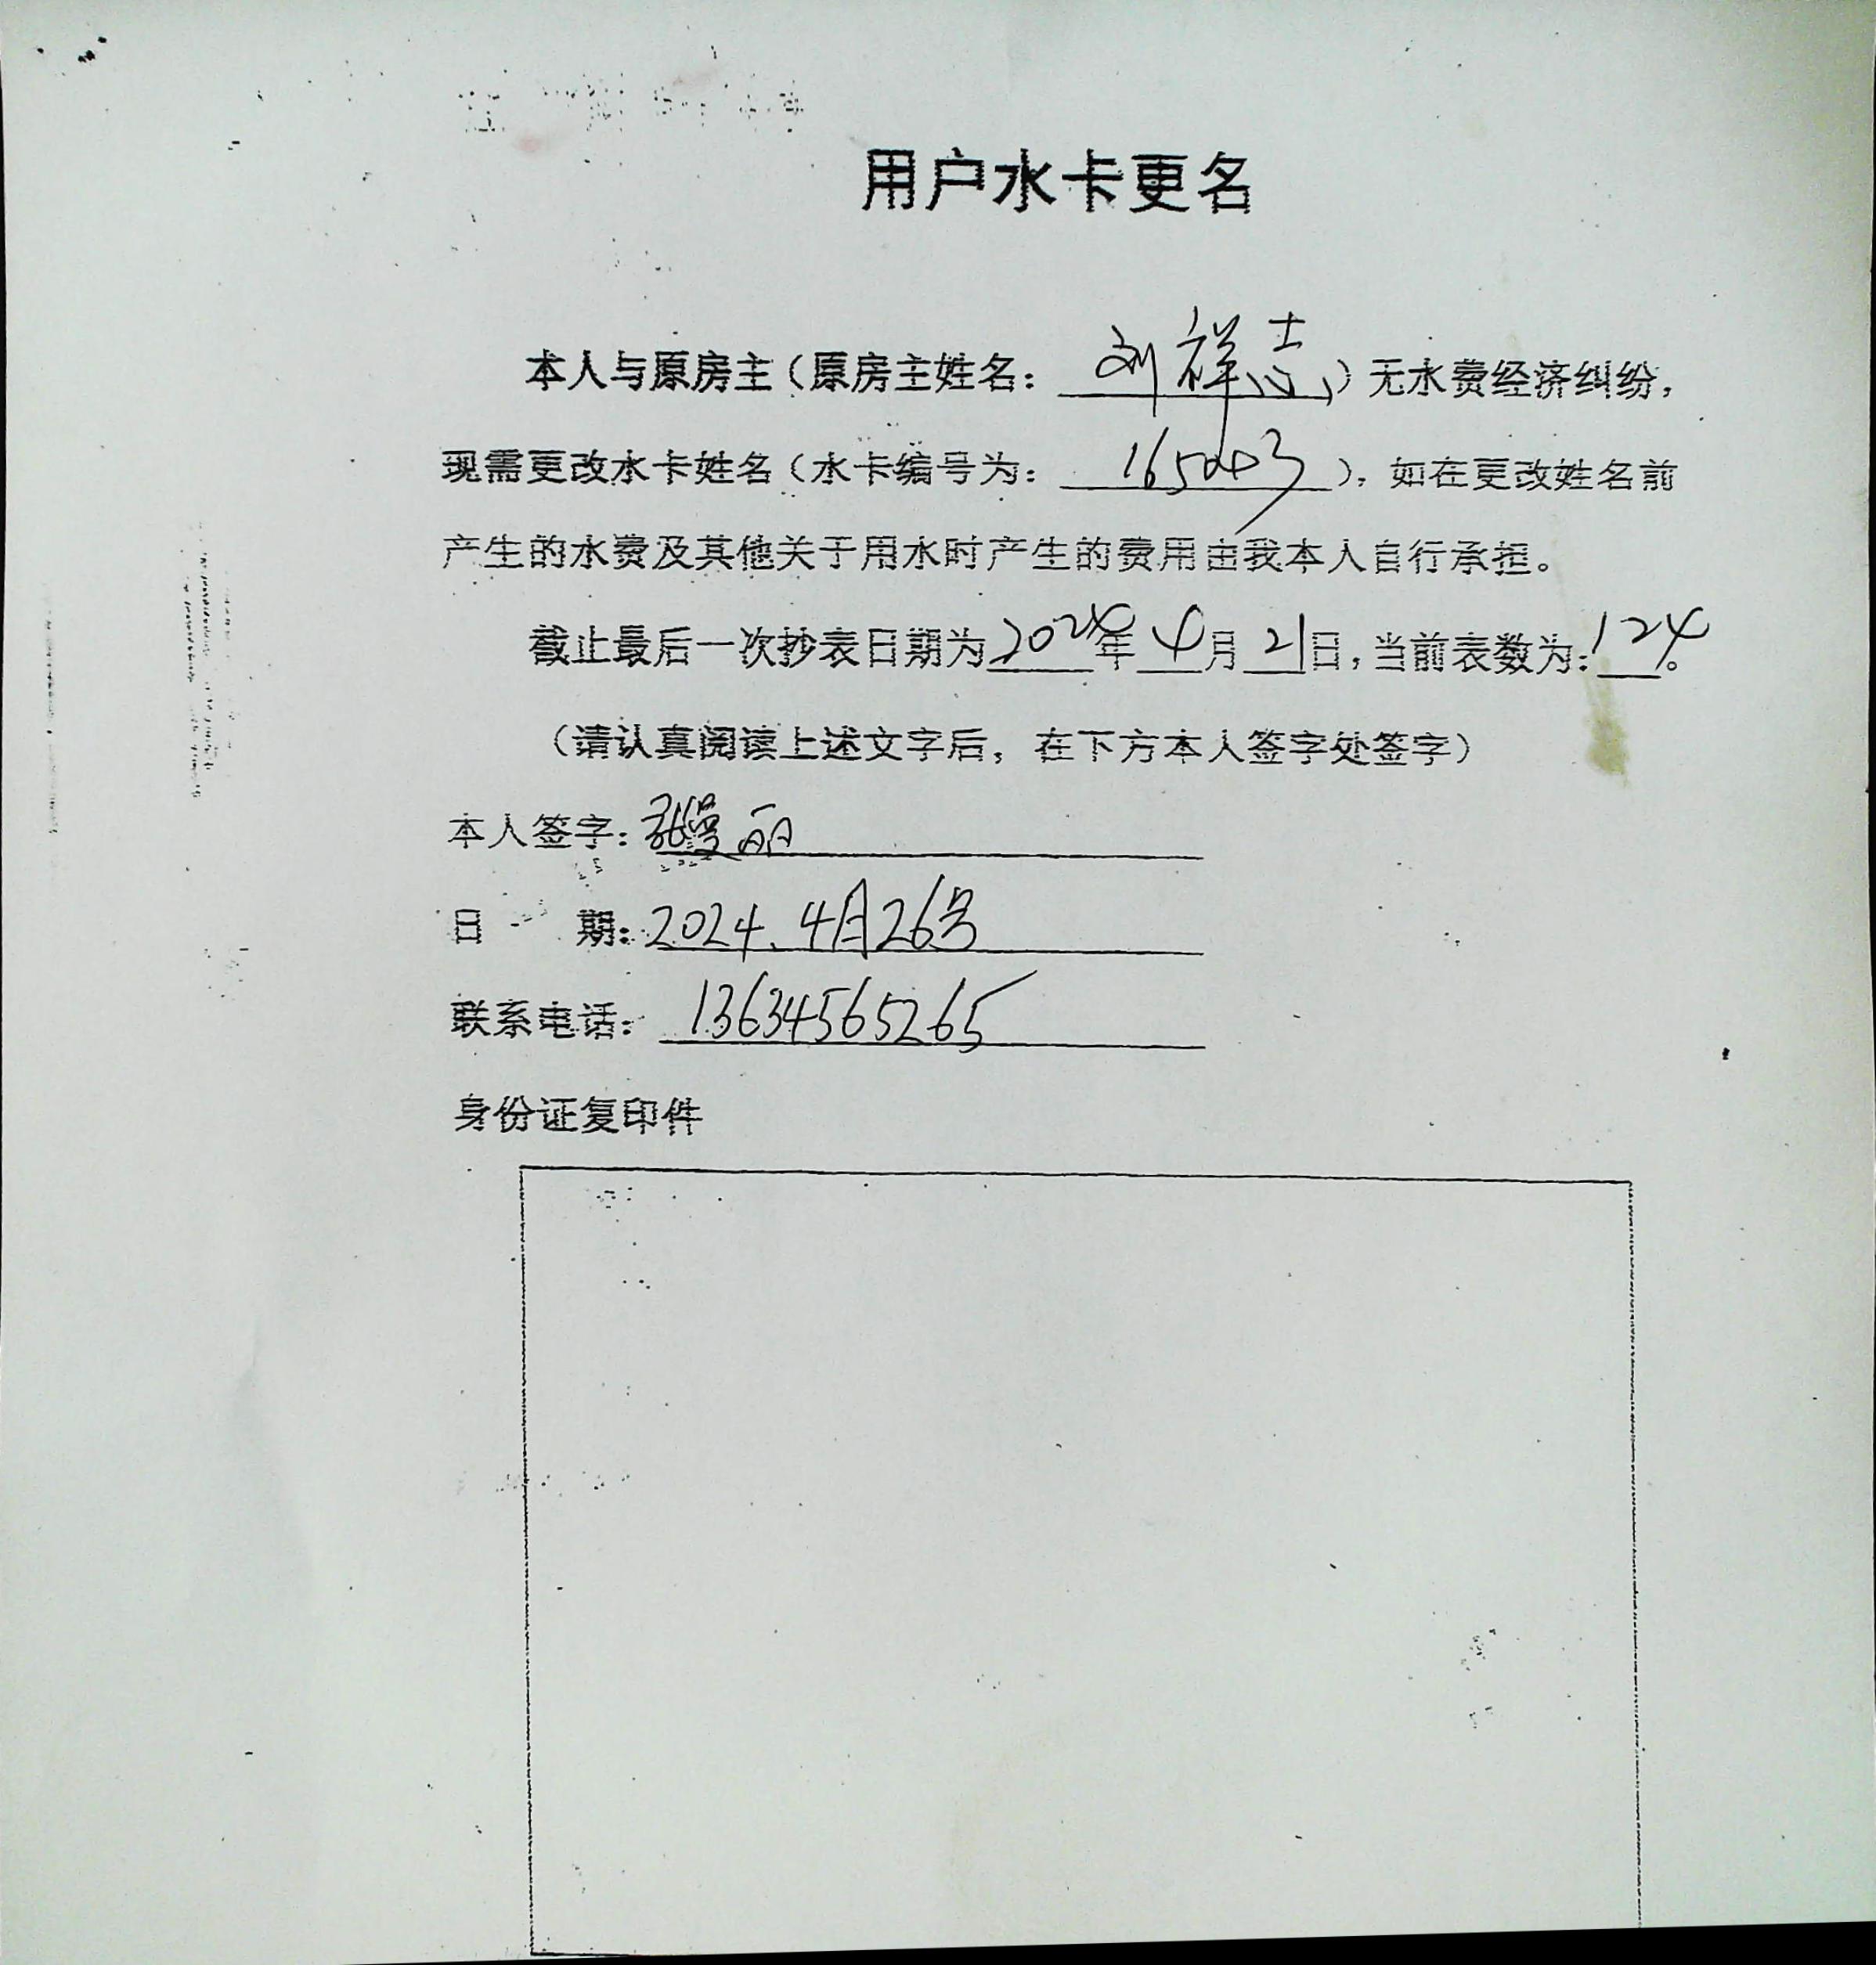 用户水卡更名
本人与原房主（原房主姓名：刘祥志）无水费经济纠纷，
现需更改水卡姓名（水卡编号为：165043），如在更改姓名前
产生的水费及其他关于用水时产生的费用由我本人自行承担。
截止最后一次抄表日期为2024年4月21日，当前表数为：124。
（请认真阅读上述文字后，在下方本人签字处签字）
本人签字：张曼丽
日 期：2024.4月26号
联系电话：13634565265
身份证复印件